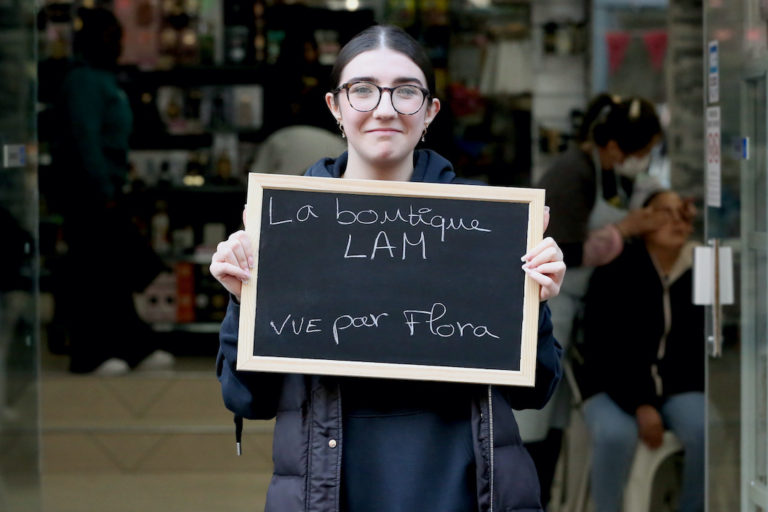 La boutique
LAM
VUE par Flora